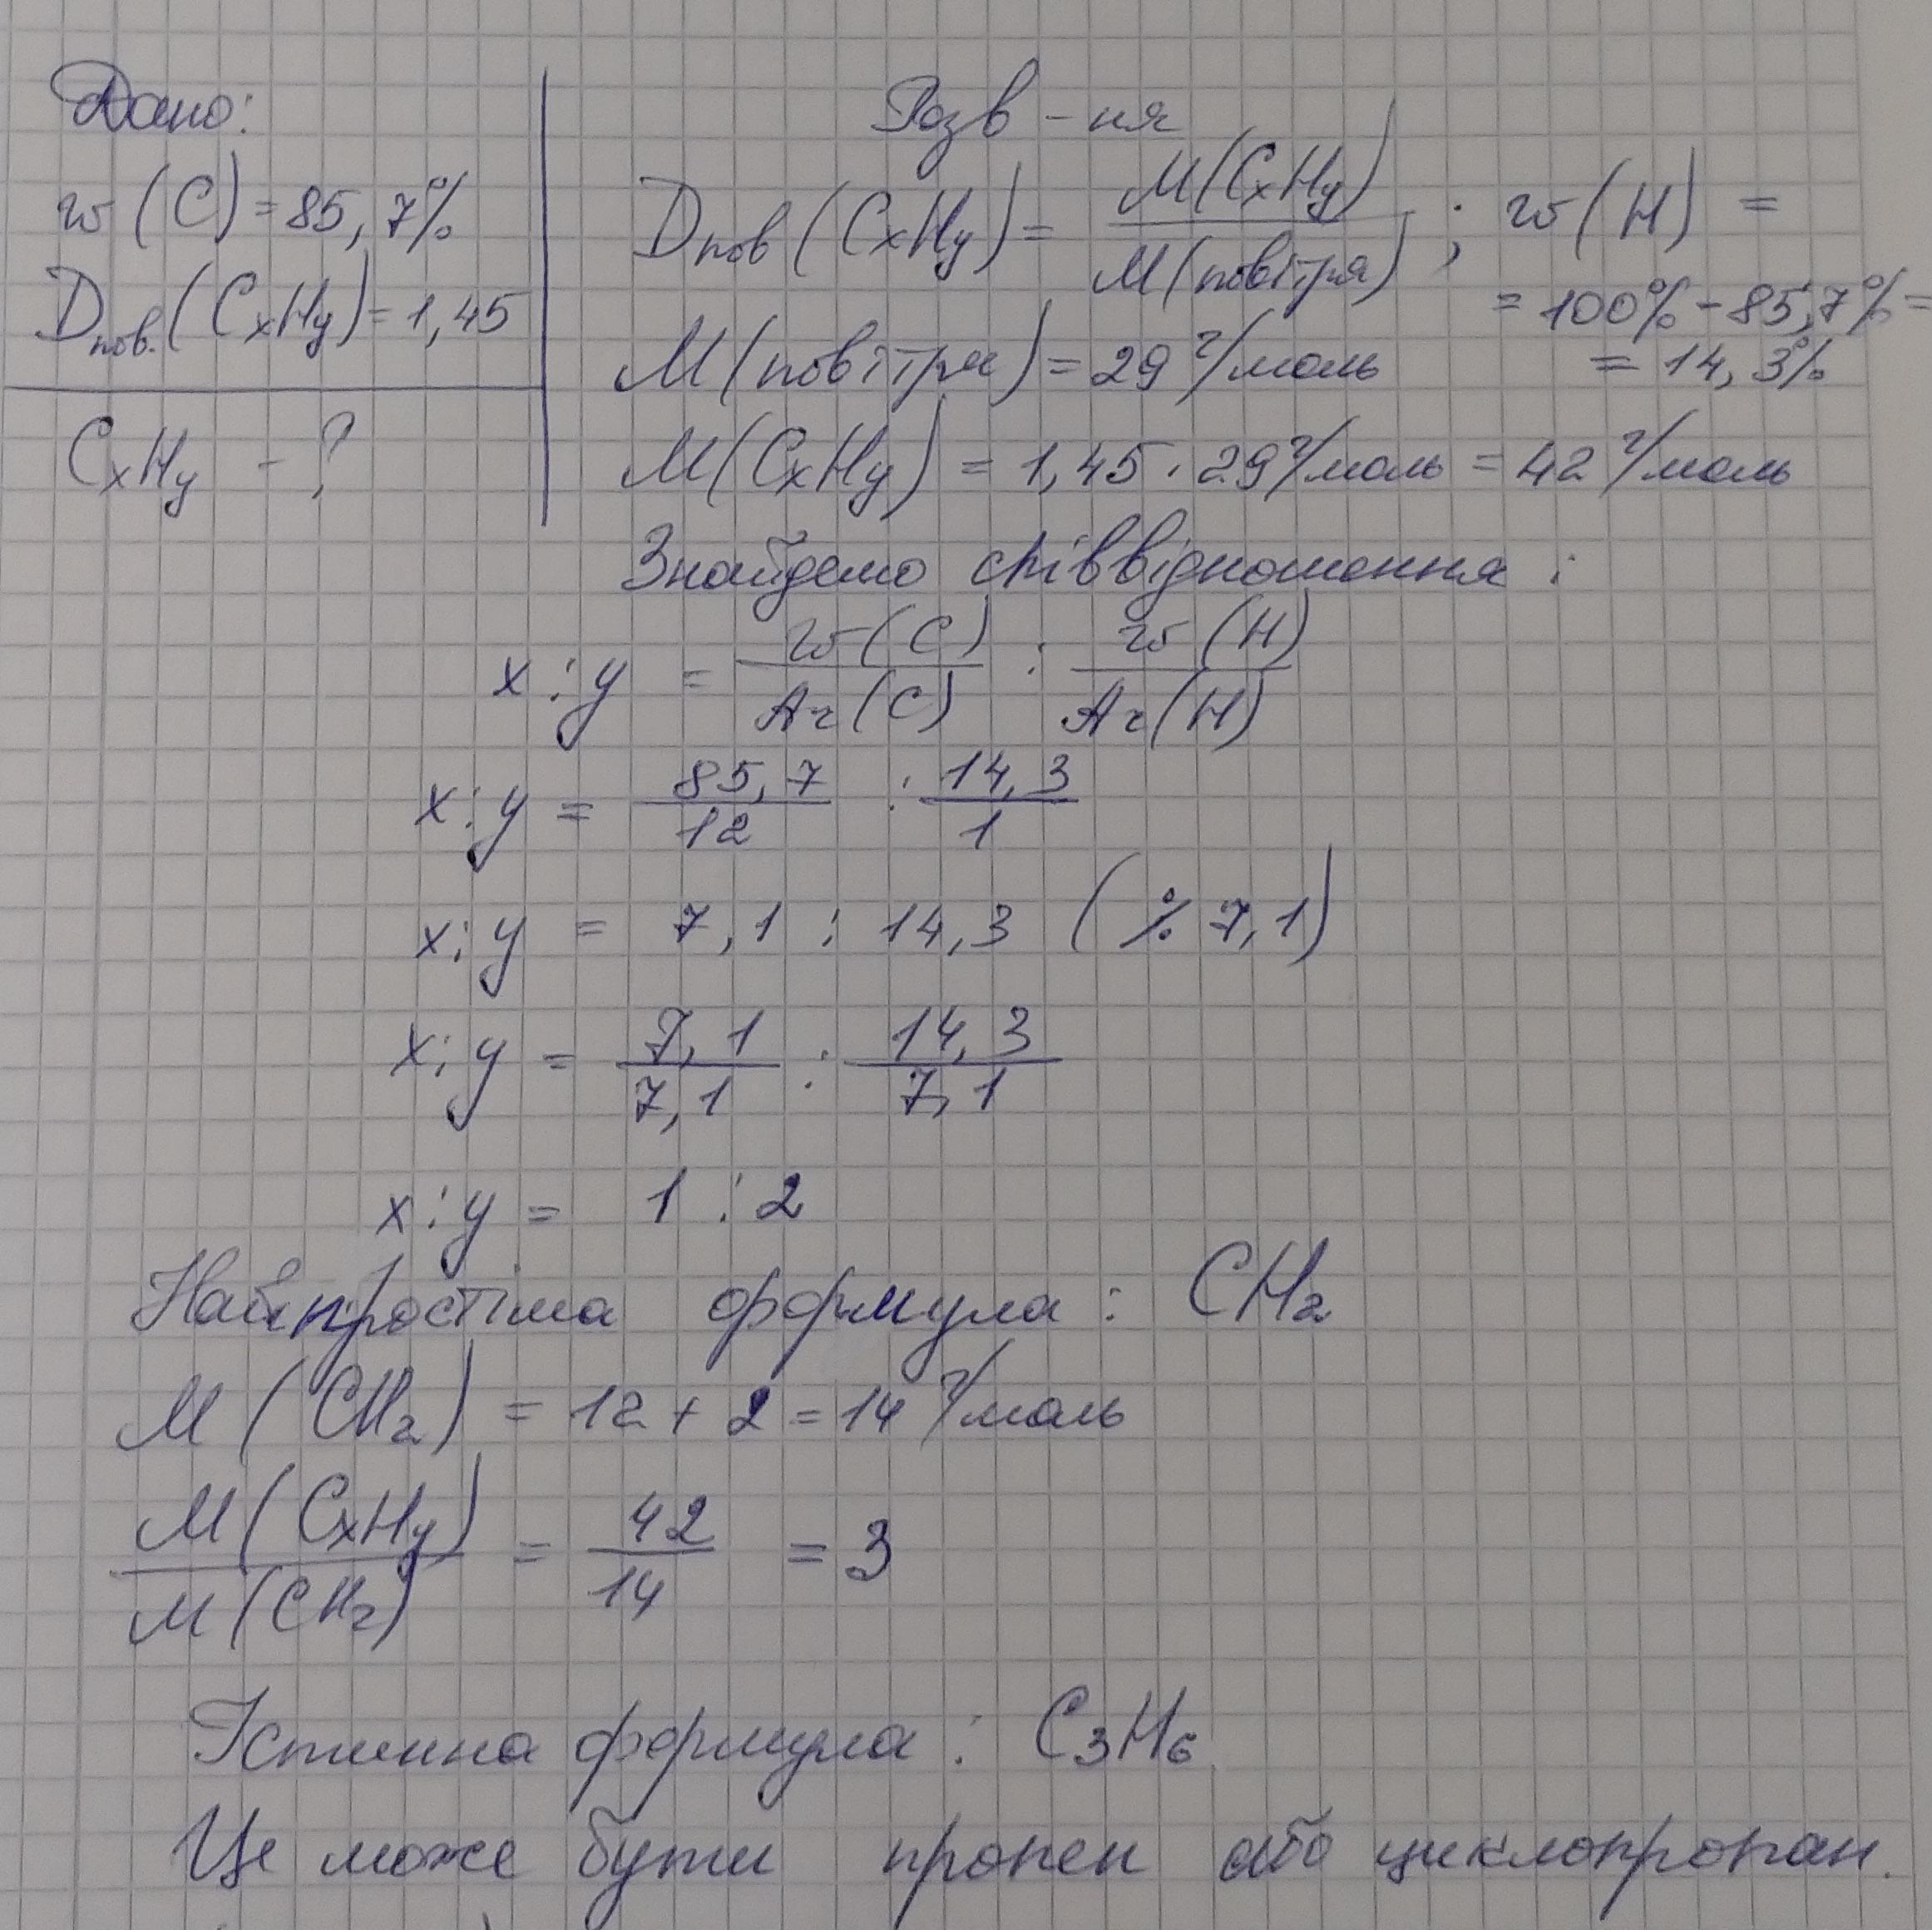 Дано:
w(C) = 85,7%
Dпов.(CxHy) = 1,45
CxHy - ?
Розв-ня
Dпов(CxHy) = M(CxHy) / M(повітря) ; w(H) =
= 100% - 85,7% =
= 14,3%
M(повітря) = 29 г/моль
M(CxHy) = 1,45 · 29 г/моль = 42 г/моль
Знайдемо співвідношення:
x : y = w(C) / Ar(C) : w(H) / Ar(H)
x : y = 85,7 / 12 : 14,3 / 1
x : y = 7,1 : 14,3 (% 7,1)
x : y = 7,1 / 7,1 : 14,3 / 7,1
x : y = 1 : 2
Найпростіша формула: CH₂
M(CH₂) = 12 + 2 = 14 г/моль
M(CxHy) / M(CH₂) = 42 / 14 = 3
Істинна формула: C₃H₆
Це може бути пропен або циклопропан.